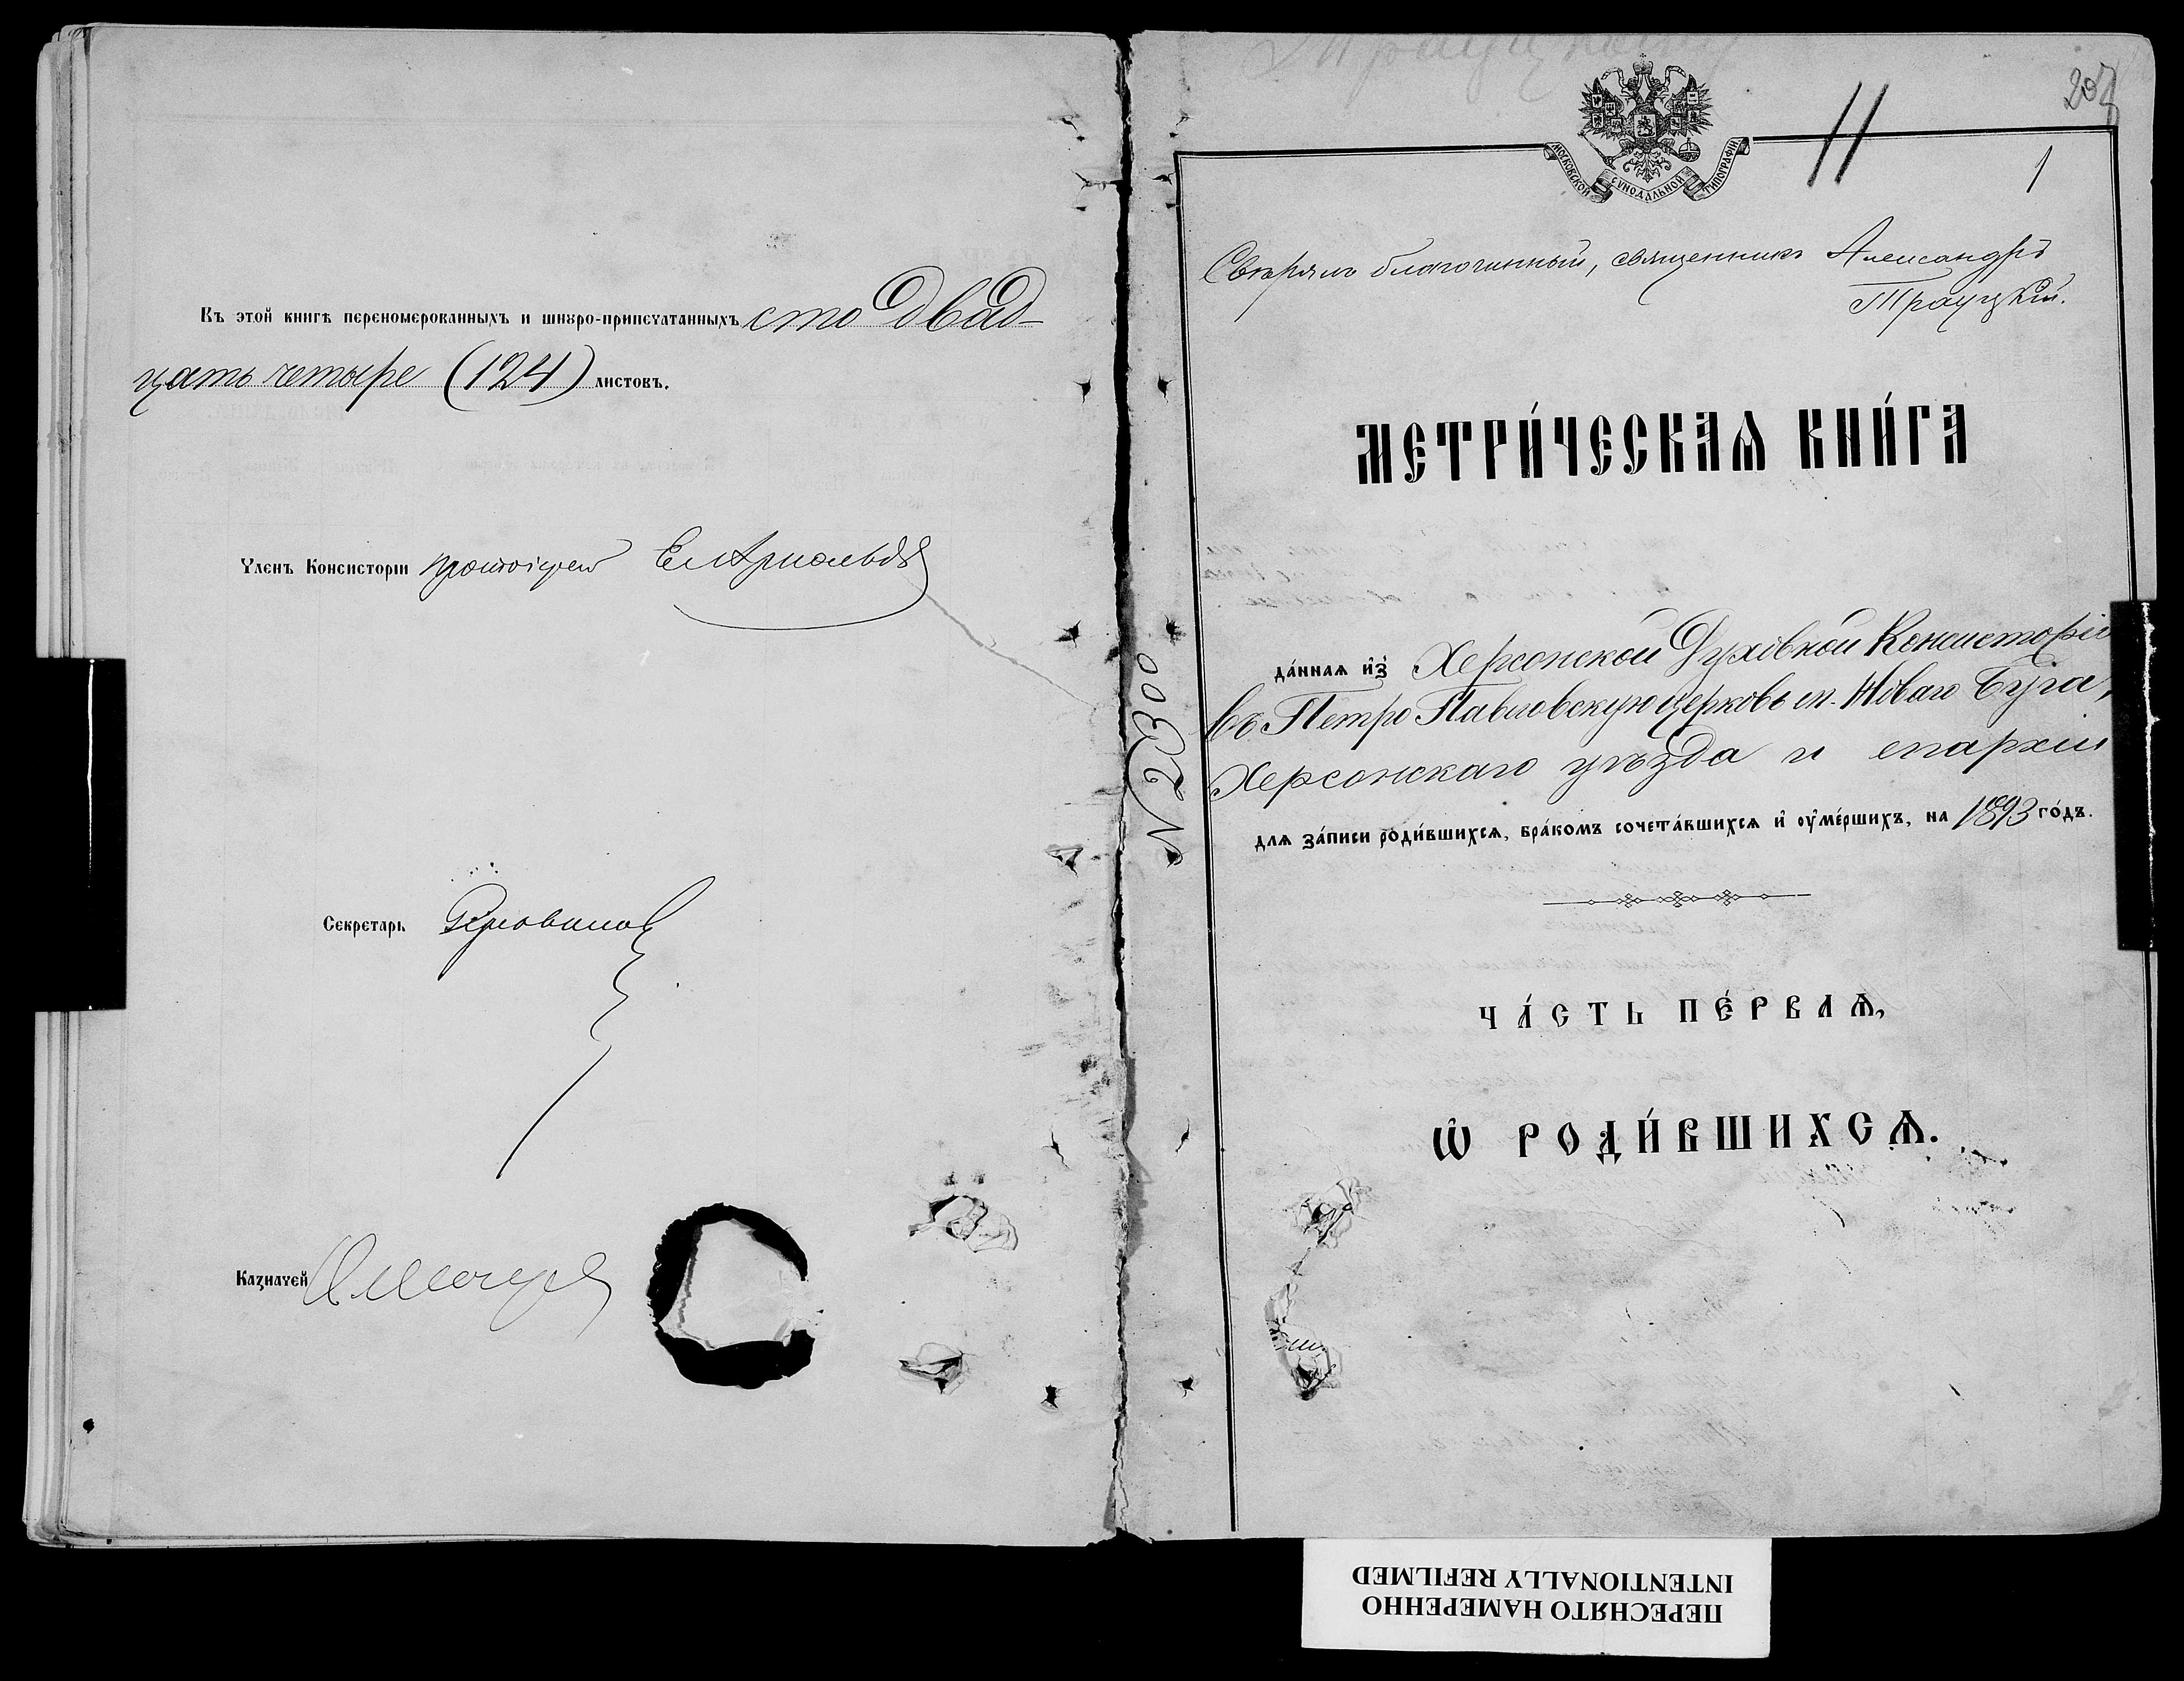 Въ этой книгѣ перенумерованныхъ и шнуро-припечатанныхъ сто двад-
цать четыре (124) листовъ.
Членъ Консисторіи протоіерей
Секретарь
Казначей
207
11
1
МОСКОВСКОЙ СѴНОДАЛЬНОЙ ТИПОГРАФІИ
Свѣрялъ благочинный, священникъ Александръ
Трауцкій.
МЕТРИ́ЧЕСКАѦ КНИ́ГА
да́ннаѧ и҆з̾ Херсонской Духовной Консисторіи
въ Петро Павловскую церковь м. Новаго Буга,
Херсонскаго уѣзда и епархіи
длѧ за́писи роди́вшихсѧ, бра́комъ сочета́вшихсѧ и҆ оу҆ме́ршихъ, на 1893 го́дъ.
№ 2300
ЧА́СТЬ ПЕ́РВАѦ,
Ѽ РОДИ́ВШИХСѦ.
ПЕРЕСНЯТО НАМЕРЕННО
INTENTIONALLY REFILMED